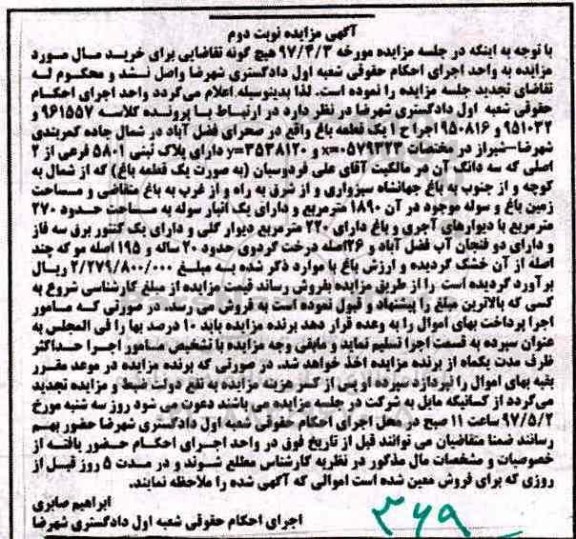 آگهی مزایده نوبت دوم
با توجه به اینکه در جلسه مزایده مورخه ۹۷/۴/۳ هیچ گونه تقاضایی برای خرید مال مورد
مزایده به واحد اجرای احکام حقوقی شعبه اول دادگستری شهرضا واصل نشد و محکوم له
تقاضای تجدید جلسه مزایده را نموده است. لذا بدینوسیله اعلام می‌گردد واحد اجرای احکام
حقوقی شعبه اول دادگستری شهرضا در نظر دارد در ارتباط با پرونده کلاسه ۹۶۱۵۵۷ و
۹۵۱۰۳۲ و ۹۵۰۸۱۶ اجرا ح ۱ یک قطعه باغ واقع در صحرای فضل آباد در شمال جاده کمربندی
شهرضا-شیراز در مختصات x=۰۵۷۹۳۲۳ و y=۳۵۳۸۱۲۰ دارای پلاک ثبتی ۵۸۰۱ فرعی از ۲
اصلی که سه دانگ آن در مالکیت آقای علی فردوسیان (به صورت یک قطعه باغ) که از شمال به
کوچه و از جنوب به باغ جهانشاه سبزواری و از شرق به راه و از غرب به باغ متقاضی و مساحت
زمین باغ و سوله موجود در آن ۱۸۹۰ مترمربع و دارای یک انبار سوله به مساحت حدود ۲۷۰
مترمربع با دیوارهای آجری و باغ دارای ۲۲۰ مترمربع دیوار گلی و دارای یک کنتور برق سه فاز
و دارای دو فنجان آب فضل آباد و ۲۶اصله درخت گردوی حدود ۲۰ ساله و ۱۹۵ اصله مو که چند
اصله از آن خشک گردیده و ارزش باغ با موارد ذکر شده به مبلغ ۲/۲۷۹/۸۰۰/۰۰۰ ریال
برآورد گردیده است را از طریق مزایده بفروش رساند قیمت مزایده از مبلغ کارشناسی شروع به
کسی که بالاترین مبلغ را پیشنهاد و قبول نموده است به فروش می رسد. در صورتی که مامور
اجرا پرداخت بهای اموال را به وعده قرار دهد برنده مزایده باید ۱۰ درصد بها را فی المجلس به
عنوان سپرده به قسمت اجرا تسلیم نماید و مابقی وجه مزایده با تشخیص مامور اجرا حداکثر
ظرف مدت یکماه از برنده مزایده اخذ خواهد شد. در صورتی که برنده مزایده در موعد مقرر
بقیه بهای اموال را نپردازد سپرده او پس از کسر هزینه مزایده به نفع دولت ضبط و مزایده تجدید
می‌گردد از کسانیکه مایل به شرکت در جلسه مزایده می باشند دعوت می شود روز سه شنبه مورخ
۹۷/۵/۲ ساعت ۱۱ صبح در محل اجرای احکام حقوقی شعبه اول دادگستری شهرضا حضور بهم
رسانند ضمنا متقاضیان می توانند قبل از تاریخ فوق در واحد اجرای احکام حضور یافته از
خصوصیات و مشخصات مال مذکور در نظریه کارشناس مطلع شوند و در مدت ۵ روز قبل از
روزی که برای فروش معین شده است اموالی که آگهی شده را ملاحظه نمایند.
ابراهیم صابری
اجرای احکام حقوقی شعبه اول دادگستری شهرضا
۳۶۹